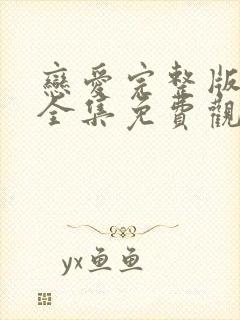 戀愛完整版
全集免費觀
yx鱼鱼